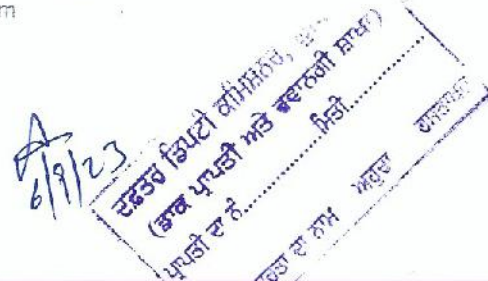 m
6/9/23
ਦਫ਼ਤਰ ਡਿਪਟੀ ਕਮਿਸ਼ਨਰ,
(ਡਾਕ ਪ੍ਰਾਪਤੀ ਅਤੇ ਰਵਾਨਗੀ ਸ਼ਾਖਾ)
ਪ੍ਰਾਪਤੀ ਦਾ ਨੰ.................ਮਿਤੀ.................
ਦਾ ਨਾਮ ਅਹੁਦਾ